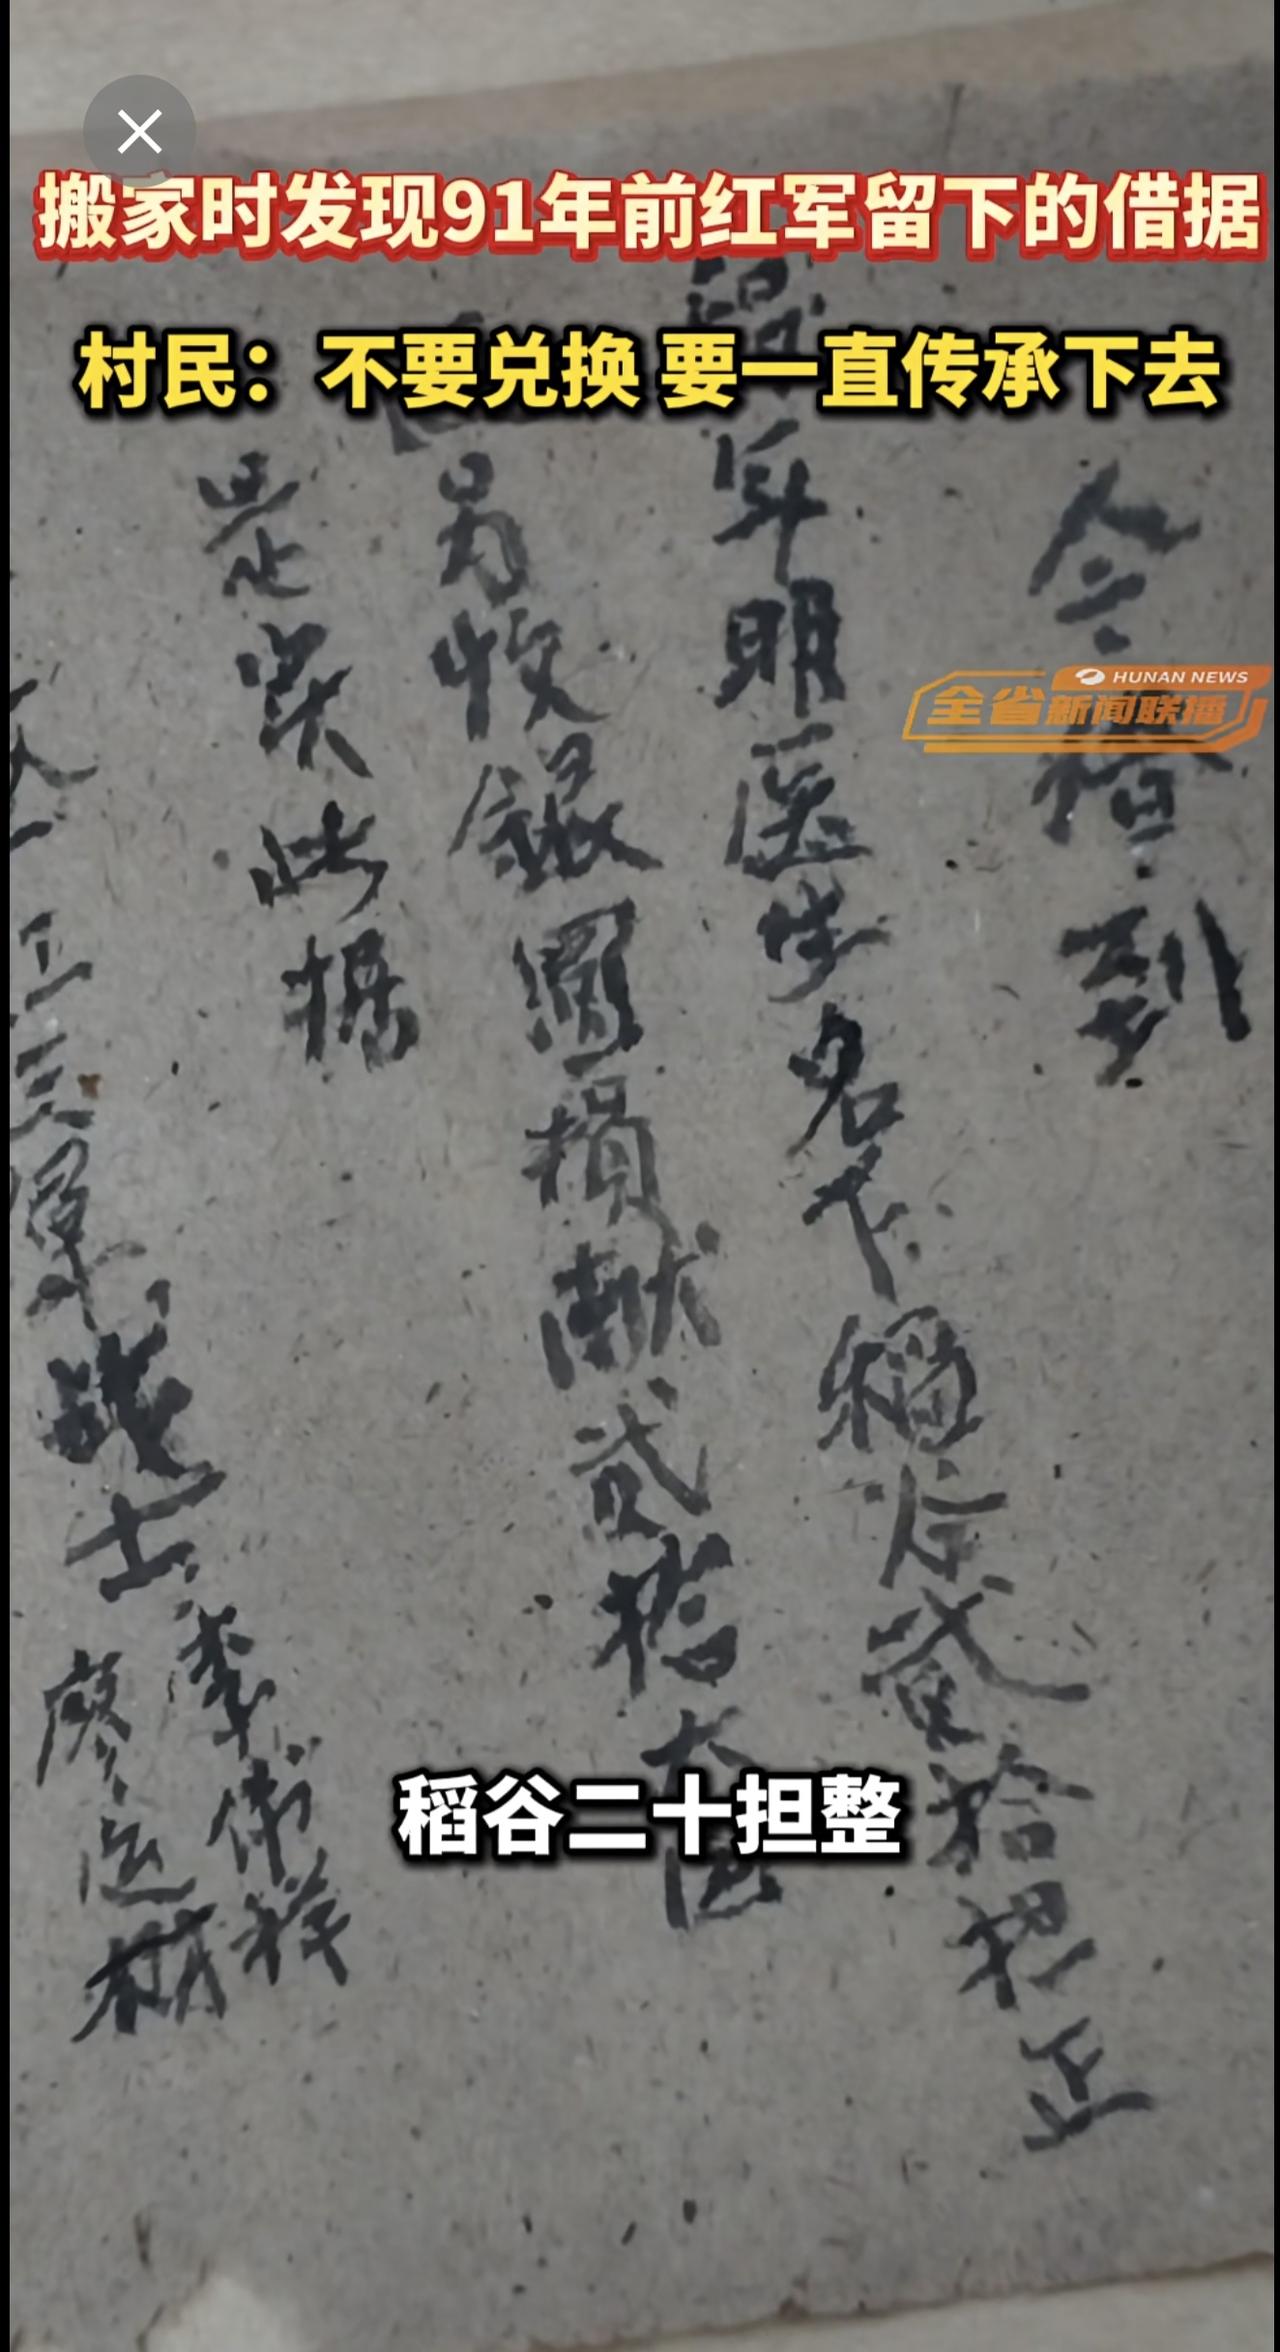 搬家时发现91年前红军留下的借据
村民：不要兑换 要一直传承下去
HUNAN NEWS
全省新闻联播
今借到
年明医生名下稻谷贰拾担正
另收銀圓捐献贰拾大
是实此据
三軍战士 李 祥
廖
稻谷二十担整